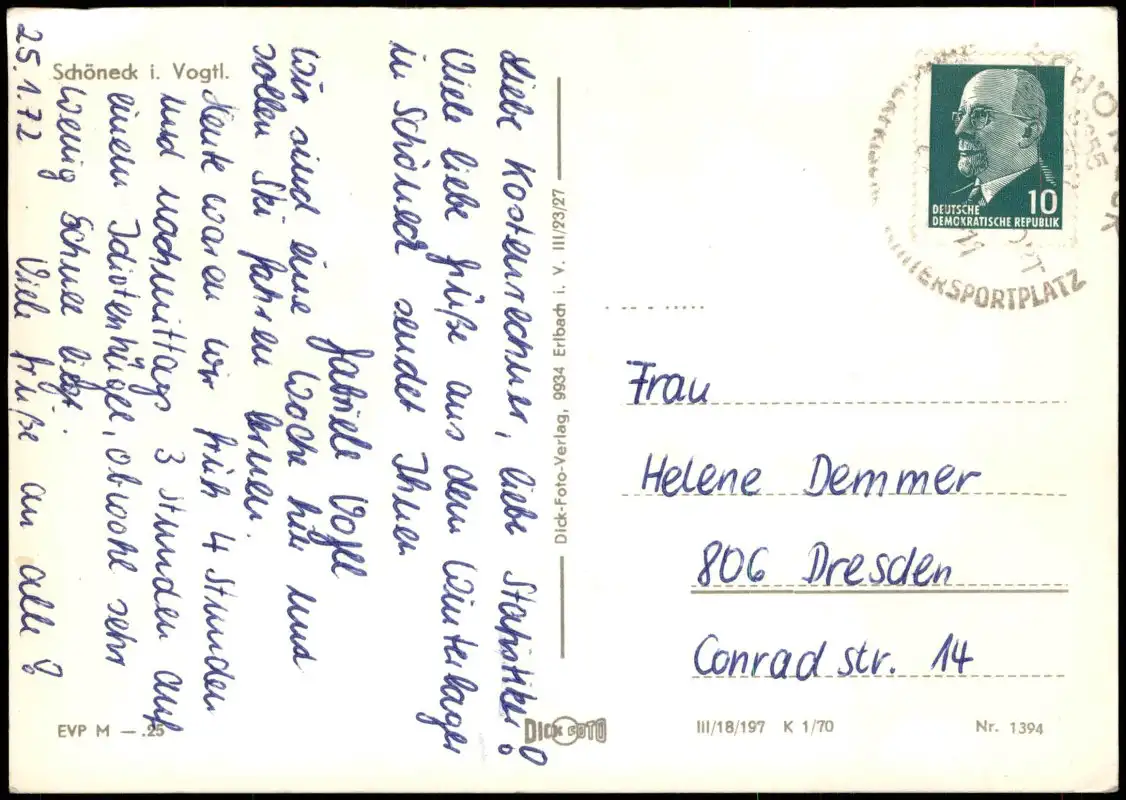 Schöneck i. Vogtl.
25.1.72
Liebe Kostenrechner, liebe Statistiker!
Viele liebe Grüße aus dem Winterlager
in Schöneck sendet Ihnen
Gabriele Vogel
Wir sind eine Woche hier und
sollen Ski fahren lernen.
Heute waren wir früh 4 Stunden
und nachmittags 3 Stunden auf
einem Idiotenhügel, obwohl sehr
wenig Schnee liegt.
Viele Grüße an alle!
EVP M —.25
Dick-Foto-Verlag, 9934 Erlbach i. V. III/23/27
DICK FOTO
DEUTSCHE
DEMOKRATISCHE REPUBLIK
10
WINTERSPORTPLATZ
Frau
Helene Demmer
806 Dresden
Conradstr. 14
III/18/197 K 1/70
Nr. 1394